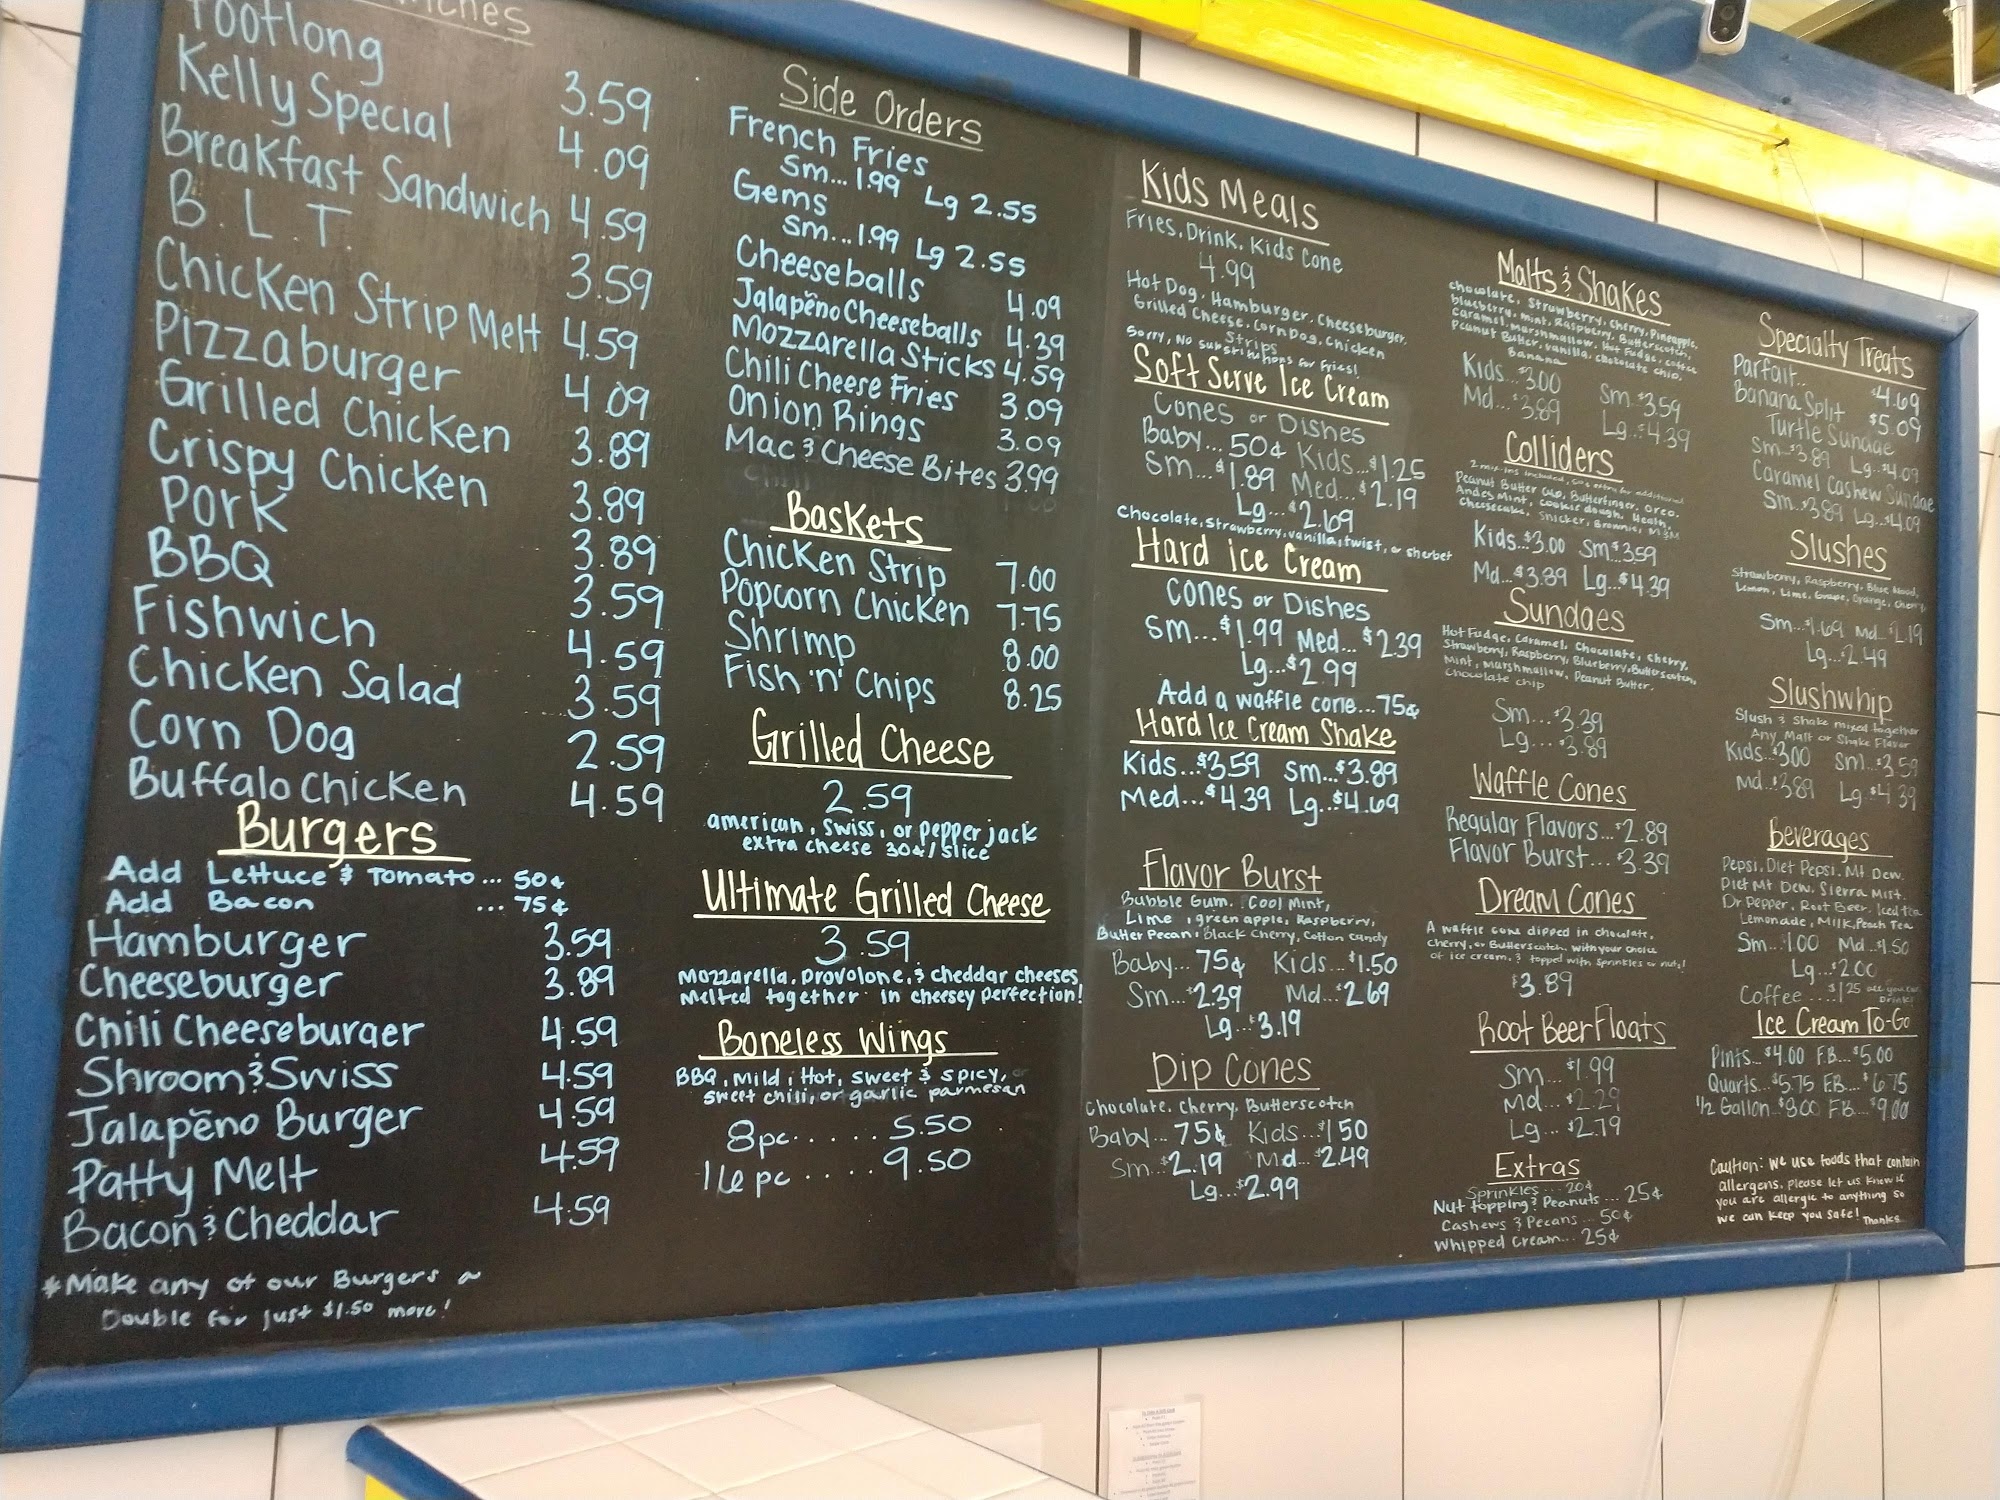 Footlong 3.59
Kelly Special 4.09
Breakfast Sandwich 4.59
B.L.T. 3.59
Chicken Strip Melt 4.59
Pizzaburger 4.09
Grilled Chicken 3.89
Crispy Chicken 3.89
Pork 3.89
BBQ 3.59
Fishwich 4.59
Chicken Salad 3.59
Corn Dog 2.59
Buffalo Chicken 4.59
Burgers
Add Lettuce & Tomato... 50¢
Add Bacon ... 75¢
Hamburger 3.59
Cheeseburger 3.89
Chili Cheeseburger 4.59
Shroom & Swiss 4.59
Jalapeño Burger 4.59
Patty Melt 4.59
Bacon & Cheddar 4.59
*Make any of our Burgers a
Double for just $1.50 more!
Side Orders
French Fries
Sm...1.99 Lg 2.55
Gems
Sm...1.99 Lg 2.55
Cheeseballs 4.09
Jalapeño Cheeseballs 4.39
Mozzarella Sticks 4.59
Chili Cheese Fries 3.09
Onion Rings 3.09
Mac & Cheese Bites 3.99
Baskets
Chicken Strip 7.00
Popcorn Chicken 7.75
Shrimp 8.00
Fish 'n' Chips 8.25
Grilled Cheese
2.59
american, swiss, or pepper jack
extra cheese 30¢/slice
Ultimate Grilled Cheese
3.59
Mozzarella, Provolone, & cheddar cheeses,
Melted together in cheesey perfection!
Boneless Wings
BBQ, Mild, Hot, sweet & spicy, or
sweet chili, or garlic parmesan
8pc..... 5.50
16pc.... 9.50
Kids Meals
Fries, Drink, Kids Cone
4.99
Hot Dog, Hamburger, Cheeseburger,
Grilled Cheese, Corn Dog, Chicken
Strips
Sorry, No substitutions for Fries!
Soft Serve Ice Cream
Cones or Dishes
Baby... 50¢ Kids...$1.25
Sm...$1.89 Med...$2.19
Lg...$2.69
Chocolate, Strawberry, vanilla, twist, or sherbet
Hard ice Cream
Cones or Dishes
Sm...$1.99 Med...$2.39
Lg...$2.99
Add a waffle cone...75¢
Hard Ice Cream Shake
Kids...$3.59 Sm...$3.89
Med...$4.39 Lg...$4.69
Flavor Burst
Bubble Gum, Cool Mint,
Lime, green apple, Raspberry,
Butter Pecan, Black Cherry, Cotton candy
Baby... 75¢ Kids...$1.50
Sm...$2.39 Md...$2.69
Lg...$3.19
Dip Cones
Chocolate, Cherry, Butterscotch
Baby... 75¢ Kids...$1.50
Sm...$2.19 Md...$2.49
Lg...$2.99
Malts & Shakes
chocolate, Strawberry, Cherry, Pineapple,
blueberry, mint, Raspberry, Butterscotch,
Caramel, Marshmallow, Hot Fudge, Coffee
Peanut Butter, vanilla, chocolate chip,
Banana
Kids...$3.00 Sm..$3.59
Md...$3.89 Lg...$4.39
Colliders
2 mix-ins included, extra for additional
Peanut Butter Cup, Butterfinger, Oreo,
Andes Mint, cookie dough, Heath,
Cheesecake, Snicker, Brownie, M&M
Kids...$3.00 Sm...$3.59
Md...$3.89 Lg...$4.39
Sundaes
Hot Fudge, Caramel, Chocolate, Cherry,
Strawberry, Raspberry, Blueberry, Butterscotch,
Mint, Marshmallow, Peanut Butter,
Chocolate chip
Sm...$3.39
Lg...$3.89
Waffle Cones
Regular Flavors...$2.89
Flavor Burst...$3.39
Dream Cones
A waffle cone dipped in chocolate,
cherry, or Butterscotch, with your choice
of ice cream, & topped with sprinkles or nuts!
$3.89
Root Beer Floats
Sm...$1.99
Md...$2.29
Lg...$2.79
Extras
Sprinkles...20¢
Nut topping & Peanuts...25¢
Cashews & Pecans...50¢
Whipped Cream...25¢
Specialty Treats
Parfait.. $4.69
Banana Split $5.09
Turtle Sundae
Sm..$3.89 Lg..$4.09
Caramel Cashew Sundae
Sm..$3.89 Lg..$4.09
Slushes
Strawberry, Raspberry, Blue Mood,
Lemon, Lime, Grape, Orange, Cherry,
Sm...$1.69 Md...$2.19
Lg...$2.49
Slushwhip
Slush & Shake mixed together
Any Malt or Shake Flavor
Kids..$3.00 Sm...$3.59
Md...$3.89 Lg...$4.39
Beverages
Pepsi, Diet Pepsi, Mt Dew,
Diet Mt Dew, Sierra Mist,
Dr Pepper, Root Beer, Iced tea
Lemonade, Milk, Peach Tea
Sm...$1.00 Md...$1.50
Lg...$2.00
Coffee....$1.25 all you can
Drink!
Ice Cream To-Go
Pints...$4.00 F.B....$5.00
Quarts..$5.75 F.B....$6.75
1/2 Gallon..$8.00 F.B....$9.00
Caution: We use foods that contain
allergens, please let us know if
you are allergic to anything so
we can keep you safe! Thanks